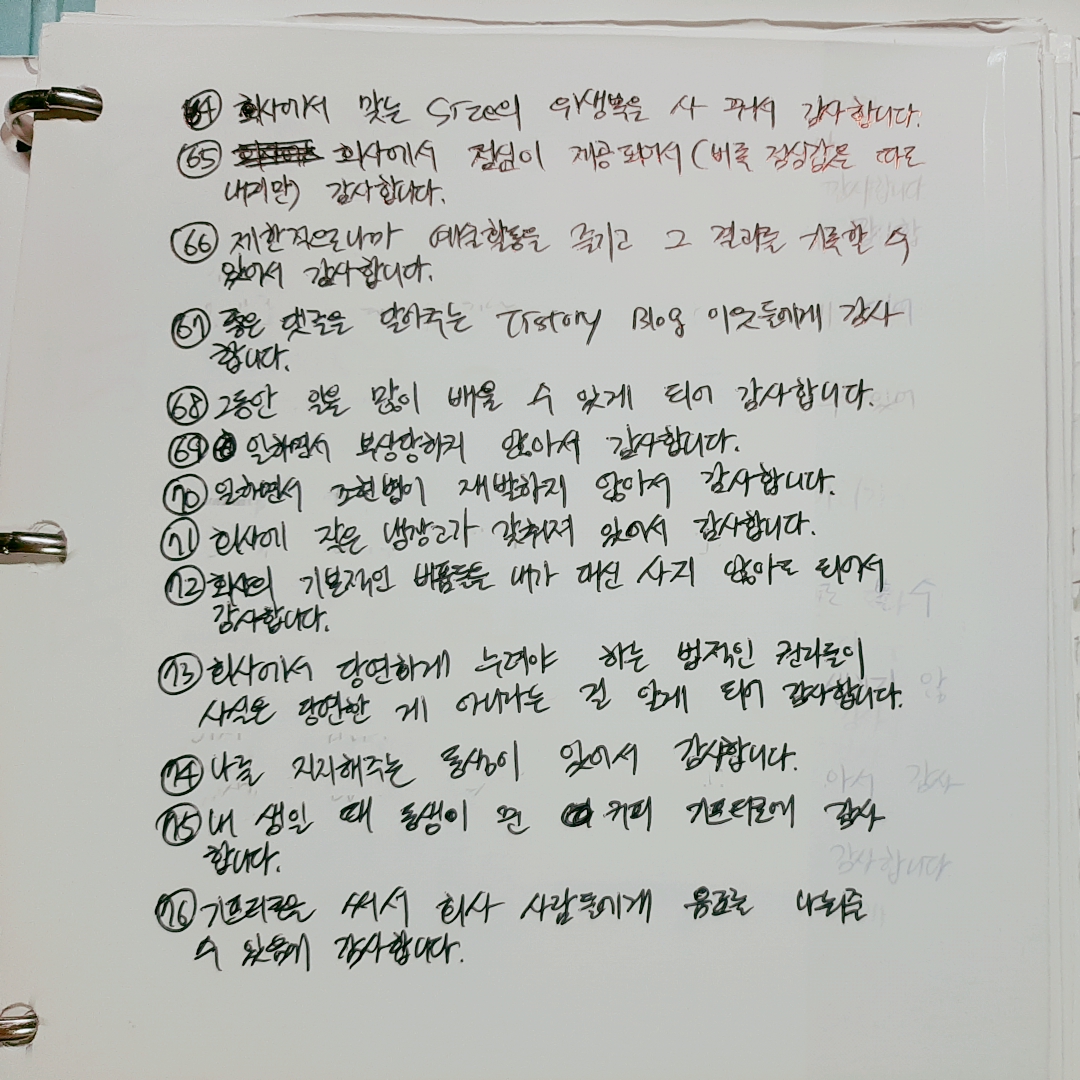 64 회사에서 맞는 Size의 위생복을 사 줘서 감사합니다.
65 회사에서 점심이 제공되어서 (비록 점심값을 따로
내지만) 감사합니다.
66 제한적으로나마 예술활동을 즐기고 그 결과를 기록할 수
있어서 감사합니다.
67 좋은 댓글을 달아주는 Tistory Blog 이웃들에게 감사
합니다.
68 그동안 일을 많이 배울 수 있게 되어 감사합니다.
69 일하면서 부상당하지 않아서 감사합니다.
70 일하면서 조현병이 재발하지 않아서 감사합니다.
71 회사에 작은 냉장고가 갖춰져 있어서 감사합니다.
72 회사의 기본적인 비품들을 내가 대신 사지 않아도 되어서
감사합니다.
73 회사에서 당연하게 누려야 하는 법적인 권리들이
사실은 당연한 게 아니라는 걸 알게 되어 감사합니다.
74 나를 지지해주는 동생이 있어서 감사합니다.
75 내 생일 때 동생이 준 커피 기프티콘에 감사
합니다.
76 기프티콘을 써서 회사 사람들에게 음료를 나눠줄
수 있음에 감사합니다.